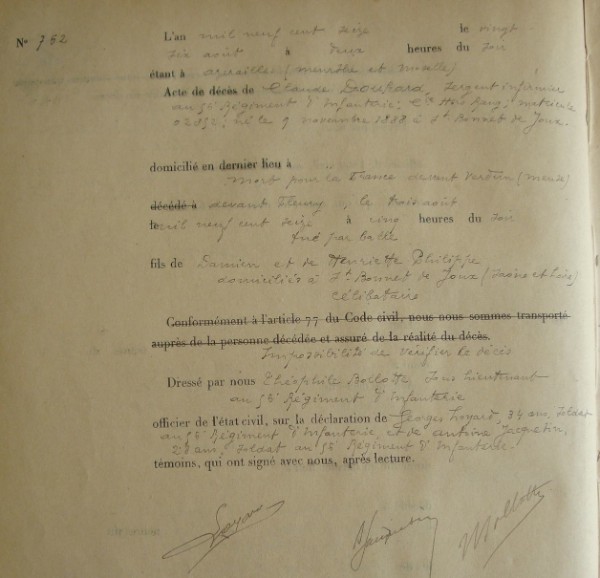 N° 762
L'an mil neuf cent seize le vingt
six août à deux heures du soir
étant à (meurthe et moselle)
Acte de décès de Claude Sergent infirmier
au 5e Régiment d'Infanterie; Cie Hors Rang; matricule
02852; né le 9 novembre 1888 à St Bonnet de Joux.
domicilié en dernier lieu à
mort pour la France devant Verdun (meuse)
décédé à devant Fleury, le trois août
le mil neuf cent seize à cinq heures du soir
tué par balle
fils de Damien et de Henriette Philippe
domiciliés à St Bonnet de Joux (Saône et Loire)
Célibataire
Conformément à l'article 77 du Code civil, nous nous sommes transporté
auprès de la personne décédée et assuré de la réalité du décès.
Impossibilité de vérifier le décès
Dressé par nous Théophile Sous Lieutenant
au 5e Régiment d'Infanterie
officier de l'état civil, sur la déclaration de Georges Loyard, 34 ans, soldat
au 5e Régiment d'Infanterie, et de Antoine Jacquetin,
28 ans, soldat au 5e Régiment d'Infanterie.
témoins, qui ont signé avec nous, après lecture.